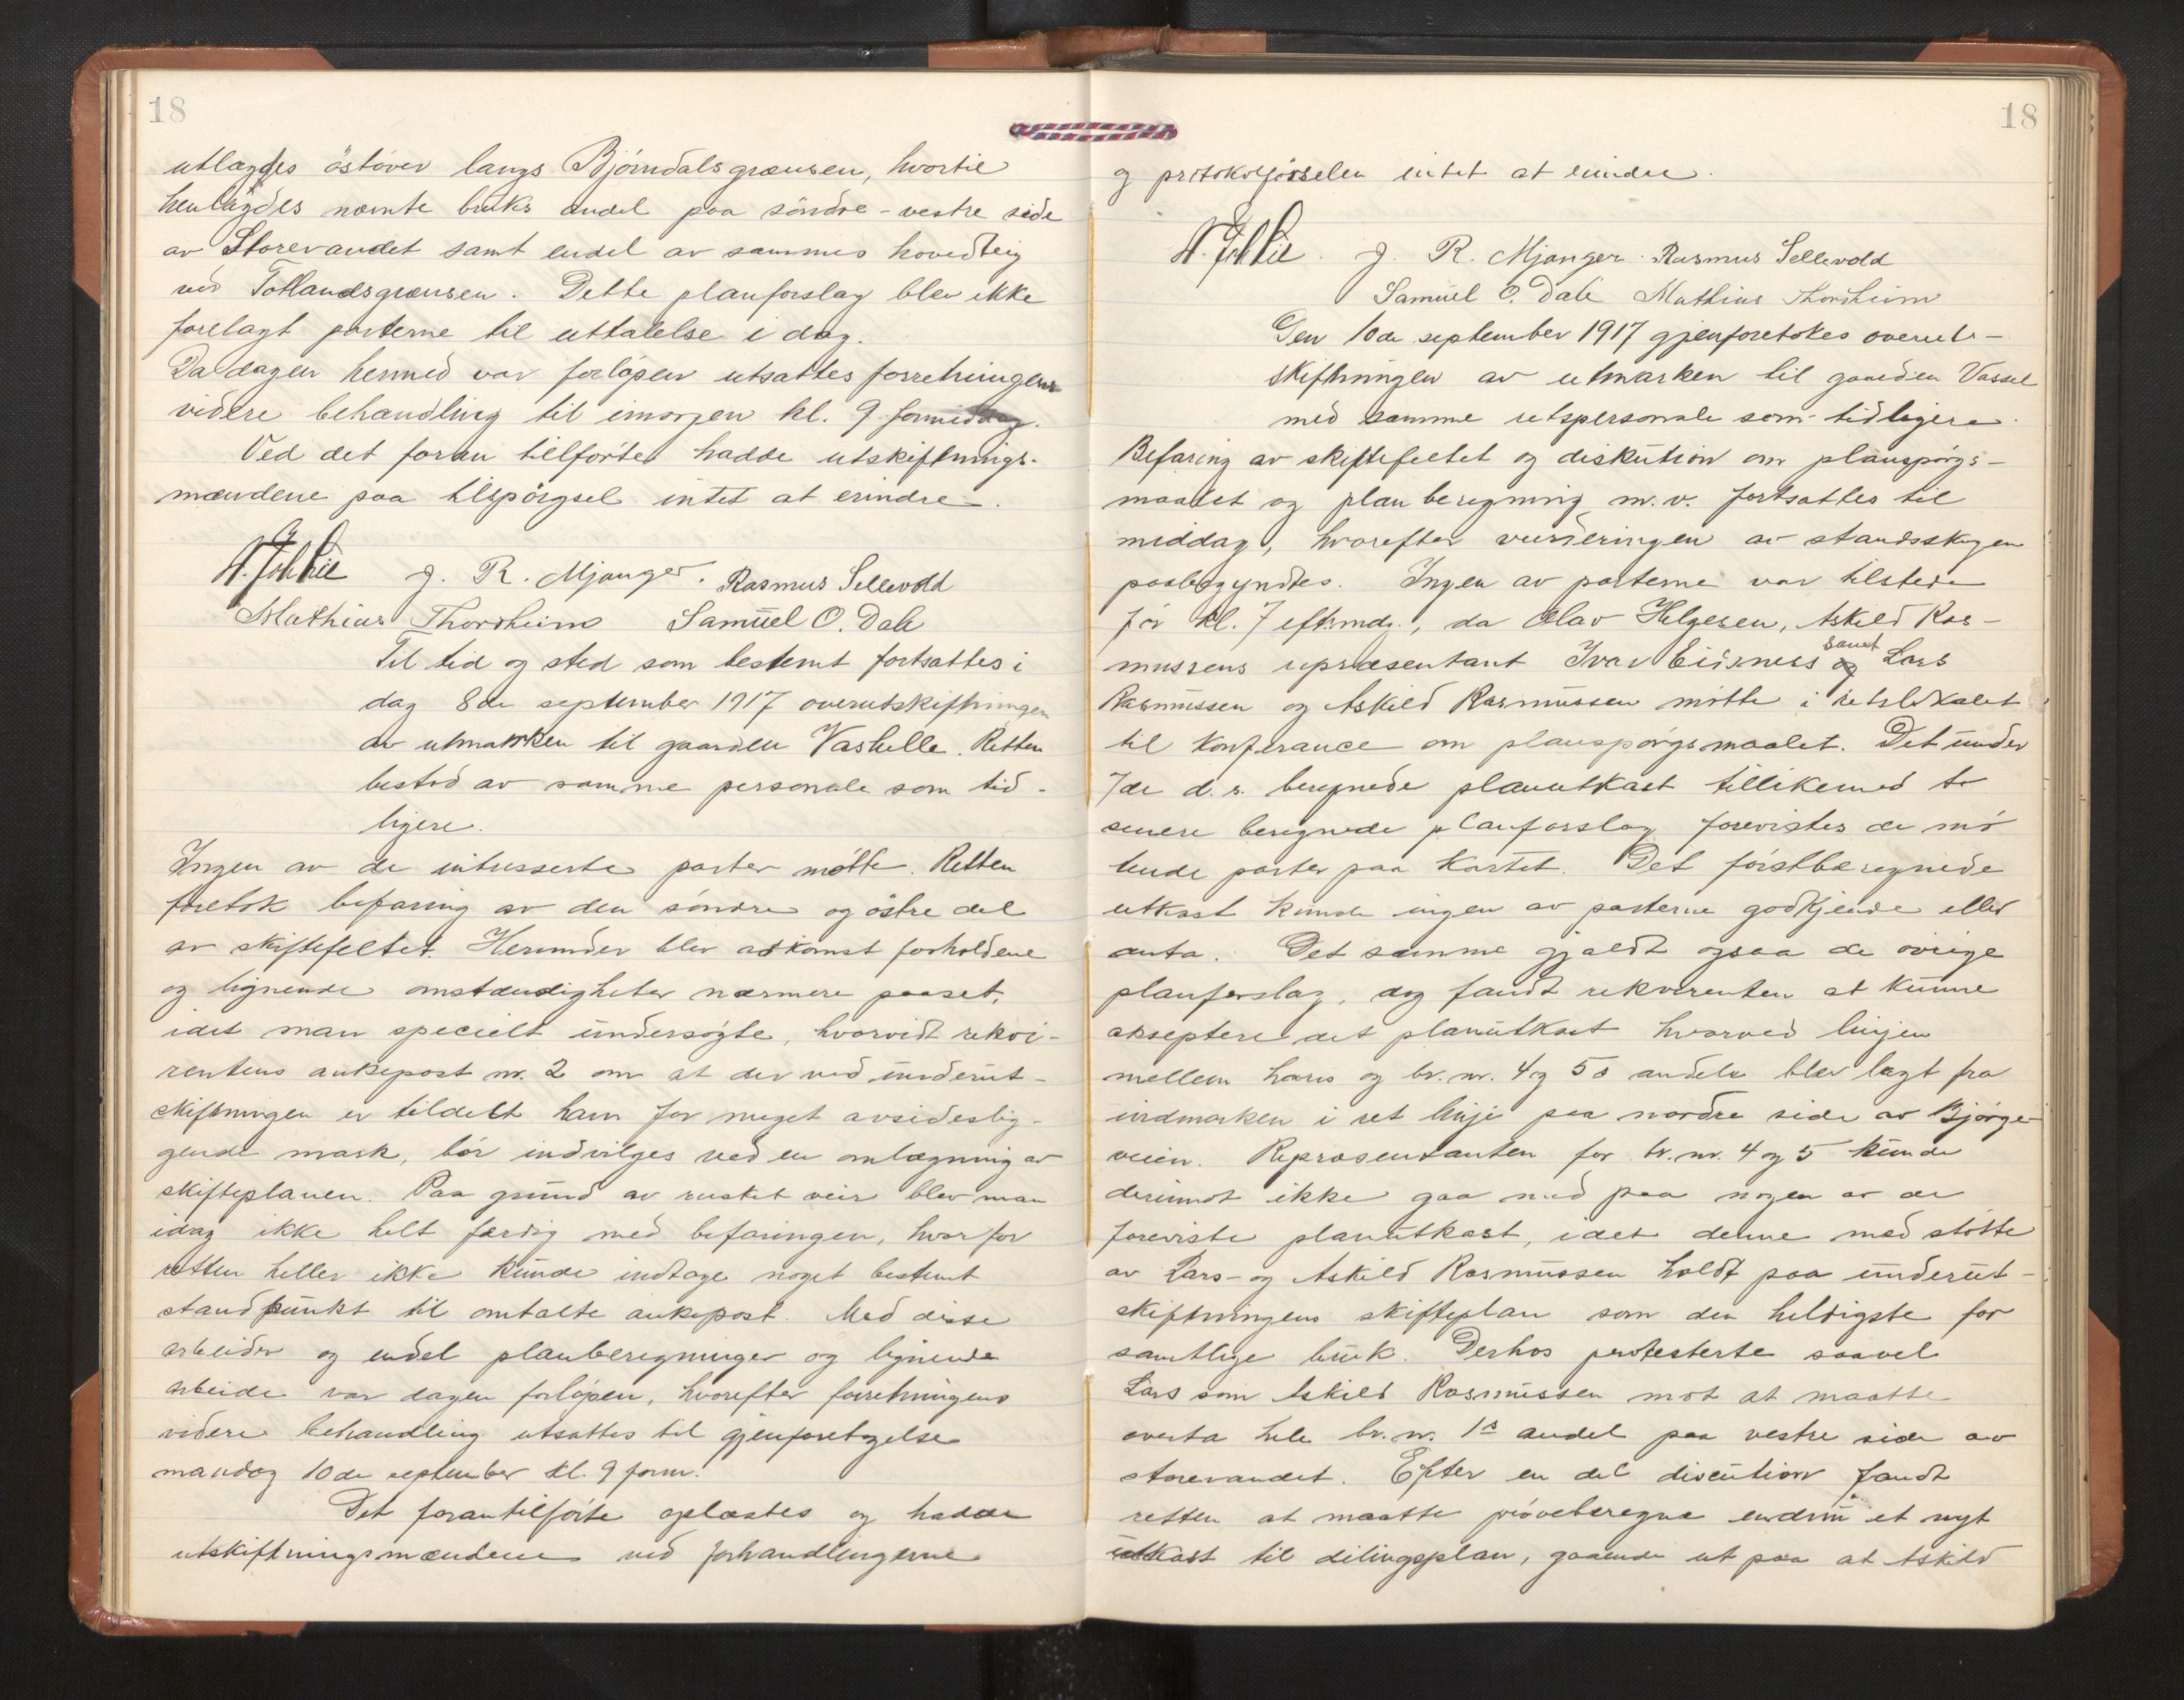 18
utlægges östover langs Björndalsgrænsen, hvortil
henlægdes nævnte bruks andel paa söndre-vestre side
av Storevandet samt endel av sammes hovedteig
ved Totlandsgrænsen. Dette planforslag blev ikke
forelagt parterne til uttalelse i dag.
Da dagen hermed var forlöpen utsattes forretningens
videre behandling til imorgen kl. 9 formiddag.
Ved det foran tilförte hadde utskiftnings-
mændene paa tilspörgsel intet at erindre.
J. R. Mjanger. Rasmus Sellevold
Mathias Thorsheim Samuel O. Dale
Til tid og sted som bestemt fortsattes i
dag 8de september 1917 overutskiftningen
av utmarken til gaarden Vasselle. Retten
bestod av samme personale som tid-
ligere.
Ingen av de intresserte parter mötte. Retten
foretok befaring av den söndre og östre del
av skiftefeltet. Herunder blev adkomst forholdene
og lignende omstændigheter nærmere paaset,
idet man specielt undersögte, hvorvidt rekvi-
rentens ankepost nr. 2 om at der ved underut-
skiftningen er tildelt ham for meget avsideslig-
gende mark, bör indvilges ved en omlægning av
skifteplanen. Paa grund av rusket veir blev man
idag ikke helt færdig med befaringen, hvorfor
retten heller ikke kunde indtage noget bestemt
standpunkt til omtalte ankepost. Med disse
arbeider og endel planberegninger og lignende
arbeide var dagen forlöpen, hvorefter forretningens
videre behandling utsattes til gjenforetagelse
mandag 10de september kl. 9 form.
Det forantilförte oplæstes og hadde
utskiftningsmændene ved forhandlingerne
18
og protokolförselen intet at erindre.
J. R. Mjanger Rasmus Sellevold
Samuel O. Dale Mathias Thorsheim
Den 10de september 1917 gjenforetokes overut-
skiftningen av utmarken til gaarden Vassel
med samme retspersonale som tidligere.
Befaring av skiftefeltet og diskution om planspörgs-
maalet og planberegning m.v. fortsattes til
middag, hvorefter vurderingen av standsskogen
paabegyndtes. Ingen av parterne var tilstede
för kl. 7 eftermdg., da Olav Helgesen, Askild Ras-
mussens repræsentant Ivar Eidsness samt Lars
Rasmussen og Askild Rasmussen mötte i retslokalet
til konferance om planspörgsmaalet. Det under
7de d.s. beregnede planutkast tillikemed to
senere beregnede planforslag forevistes de mö
tende parter paa kartet. Det förstberegnede
utkast kunde ingen av parterne godkjende eller
anta. Det samme gjaldt ogsaa de övrige
planforslag, dog fandt rekvirenten at kunne
akseptere det planutkast hvorved linjen
mellem hans og br. nr. 4 og 5s andele blev lagt fra
indmarken i ret linje paa nordre side av Bjørge-
veien. Repræsentanten for br. nr. 4 og 5 kunde
derimot ikke gaa med paa nogen av de
foreviste planutkast, idet denne med stötte
av Lars- og Askild Rasmussen holdt paa underut-
skiftningens skifteplan som den heldigste for
samtlige bruk. Derhos protesterte saavel
Lars som Askild Rasmussen mot at maatte
overta hele br. nr. 1s andel paa vestre side av
storevandet. Efter en del discution fandt
retten at maatte pröveberegne endnu et nyt
utkast til delingsplan, gaaende ut paa at Askild